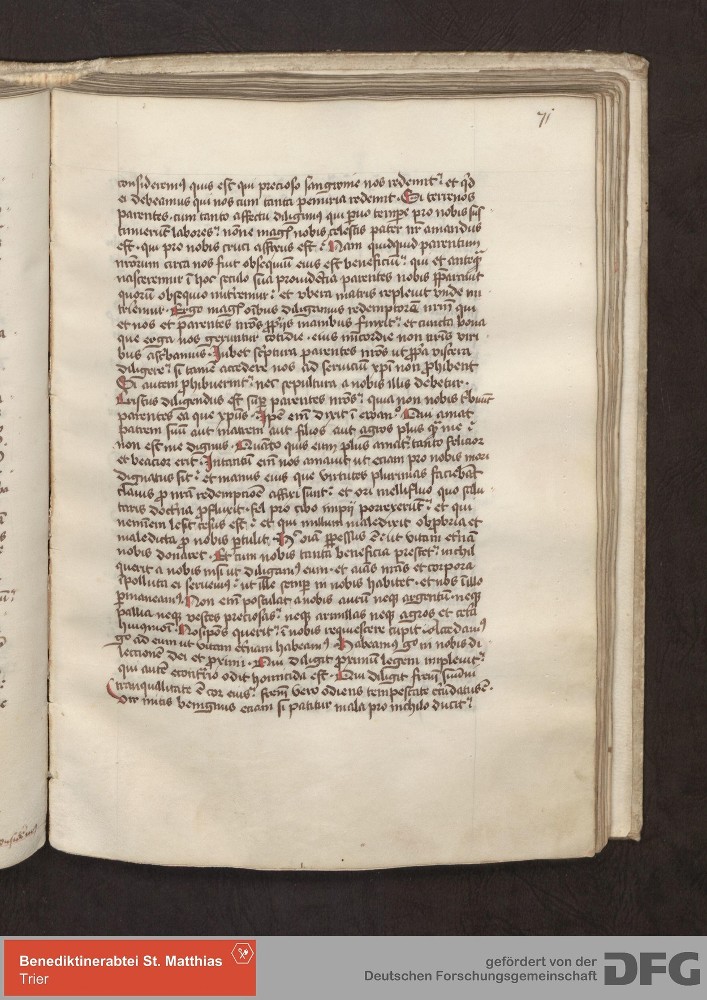 71
consideremus quis est qui precioso sanguine nos redemit et quid
ei debeamus qui nos cum tanta penuria redemit. Si terrenos
parentes cum tanto affectu diligimus qui parvo tempore pro nobis sus
tinuerunt labores nonne magis nobis celestis pater noster amandus
est qui pro nobis cruci affixus est. Nam quidquid parentum
nostrorum circa nos fuit obsequium eius est beneficium qui et antequam
nasceremur in hoc seculo sua providentia parentes nobis preparavit
quorum obsequio nutriremur et ubera matris replevit unde nu
triremur. Ergo magis omnibus diligamus redemptorem nostrum qui
et nos et parentes nostros propriis manibus finxit et cuncta bona
que erga nos geruntur cotidie eius misericordie non nostris viri
bus ascribamus. Iubet scriptura parentes nostros ut propria viscera
diligere si tamen accedere nos ad servicium xpi non prohibent
Si autem prohibuerint nec sepultura a nobis illis debetur.
Cristus diligendus est super parentes nostros quia non nobis tribuunt
parentes ea que xpus. Ipse enim dixit in ewangelio. Qui amat
patrem suum aut matrem aut filios aut agros plus quam me
non est me dignus. Quanto quis eum plus amat tanto felicior
et beatior erit. Intantum enim nos amavit ut etiam pro nobis mori
dignatus sit et manus eius que virtutes plurimas faciebant
clavis pro nostra redemptione affixi sunt et ori mellifluo quo salu
taris doctrina profluxit fel pro cibo impii porrexerunt et qui
neminem lesit cesus est et qui nullum maledixit obprobria et
maledicta pro nobis pertulit. Hec omnia perpessus est ut vitam eternam
nobis donaret. Et cum nobis tanta beneficia prestet nichil
querit a nobis nisi ut diligamus eum et animas nostras et corpora
impolluta ei servemus ut ille semper in nobis habitet et nos in illo
permaneamus. Non enim postulat a nobis aurum neque argentum neque
pallia neque vestes preciosas neque armillas neque agros et cetera
huiusmodi. Nosipsos querit in nobis requiescere cupit. Accedamus
go ad eum ut vitam eternam habeamus. Habeamus go in nobis di
lectionem dei et proximi. Qui diligit proximum legem implevit
qui autem econtrario odit homicida est. Qui diligit fratrem suum in
tranquilitate est cor eius fratrem vero odiens tempestate circumdatus est.
Vir mitis benignus etiam si patitur mala pro nichilo ducit
Benediktinerabtei St. Matthias
Trier
gefördert von der
Deutschen Forschungsgemeinschaft
DFG